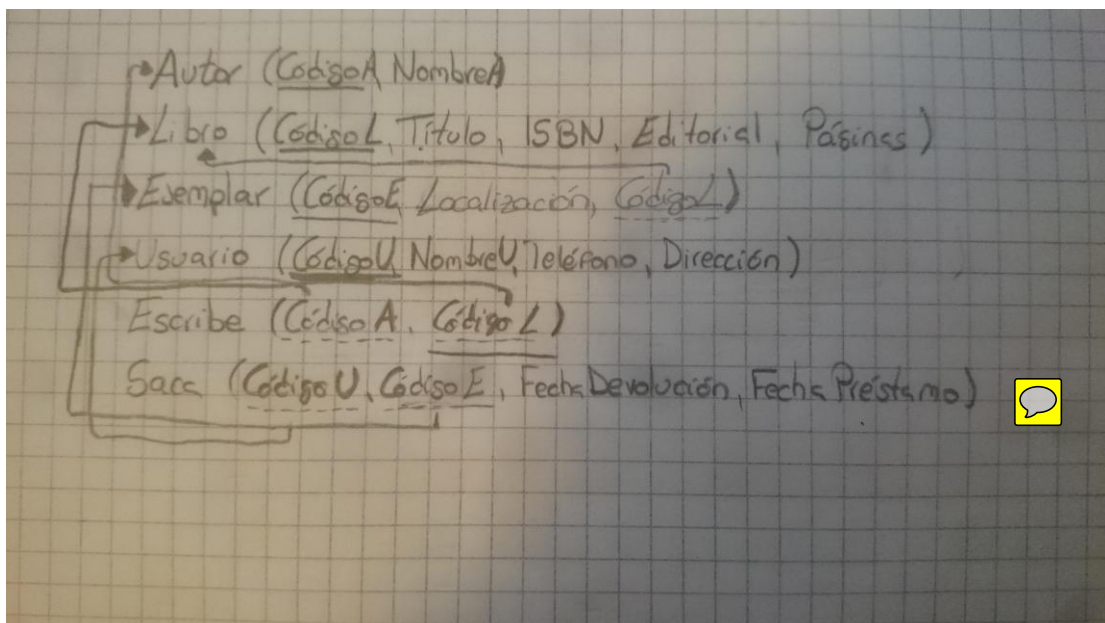 Autor (CódigoA, NombreA)
Libro (CódigoL, Título, ISBN, Editorial, Páginas)
Ejemplar (CódigoE, Localización, CódigoL)
Usuario (CódigoU, NombreU, Teléfono, Dirección)
Escribe (Código A, Código L)
Saca (Código U, Código E, Fecha Devolución, Fecha Préstamo)